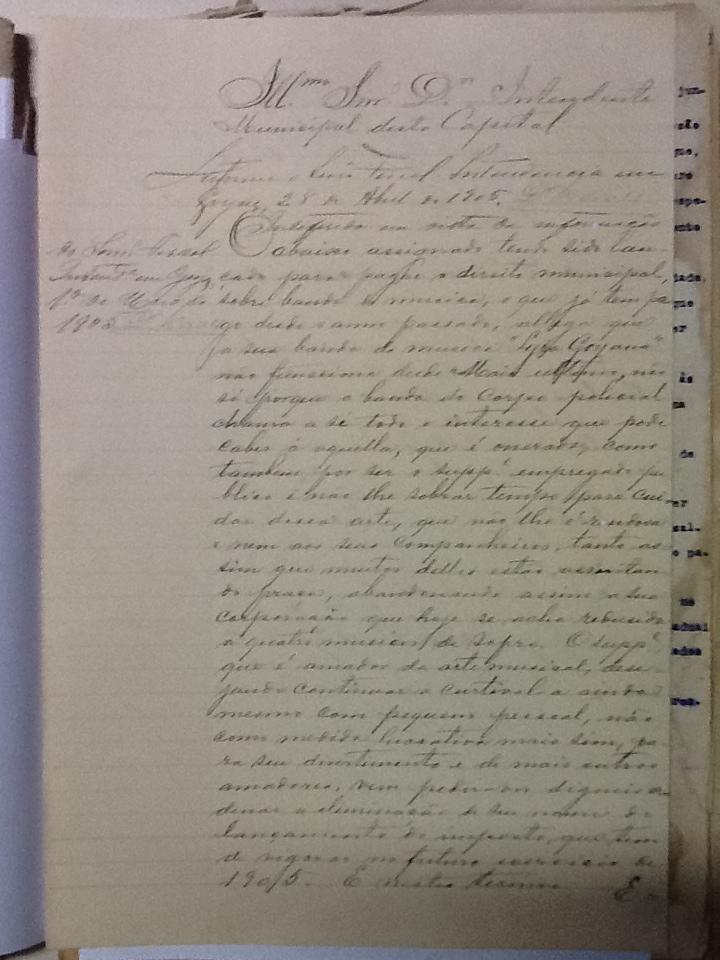 Mmo Snr Dor Intendente
Municipal desta Capital
Informe o Snr Fiscal. Intendencia em
Goyaz, 28 de Abril de 1905.
do Snr Fiscal
Intendª em Goyaz
1º de Março de
1905
abaixo assignado tendo sido lan-
çado para pagar o direito municipal,
sobre banda de musica, e que já tem pa-
go desde o anno passado, allega que
ja sua banda de musica "Lyra Goyana"
não funciona desde Maio ultimo, não
só porque a banda do Corpo policial
chama a si todo o interesse que pode
caber á aquella, que é onerada, como
tambem por ser o suppe empregado pu-
blico e não lhe sobrar tempo para cui-
dar dessa arte, que não lhe é rendosa
e nem aos seus Companheiros, tanto as-
sim que muitos delles estão
praça, abandonando assim a sua
corporação que hoje se acha redusida
a quatro musicos de sopro. O suppe
que é amador da arte musical, dese-
jando continuar a cultival-a ainda
mesmo com pequeno pessoal, não
como medida lucrativa mais sim, pa-
ra seu divertimento e de mais outros
amadores, vem pedir-vos digneis or-
denar a eliminação de seu nome do
lançamento do imposto, que tem
de vigorar no futuro exercicio de
1905. E nestes termos E.